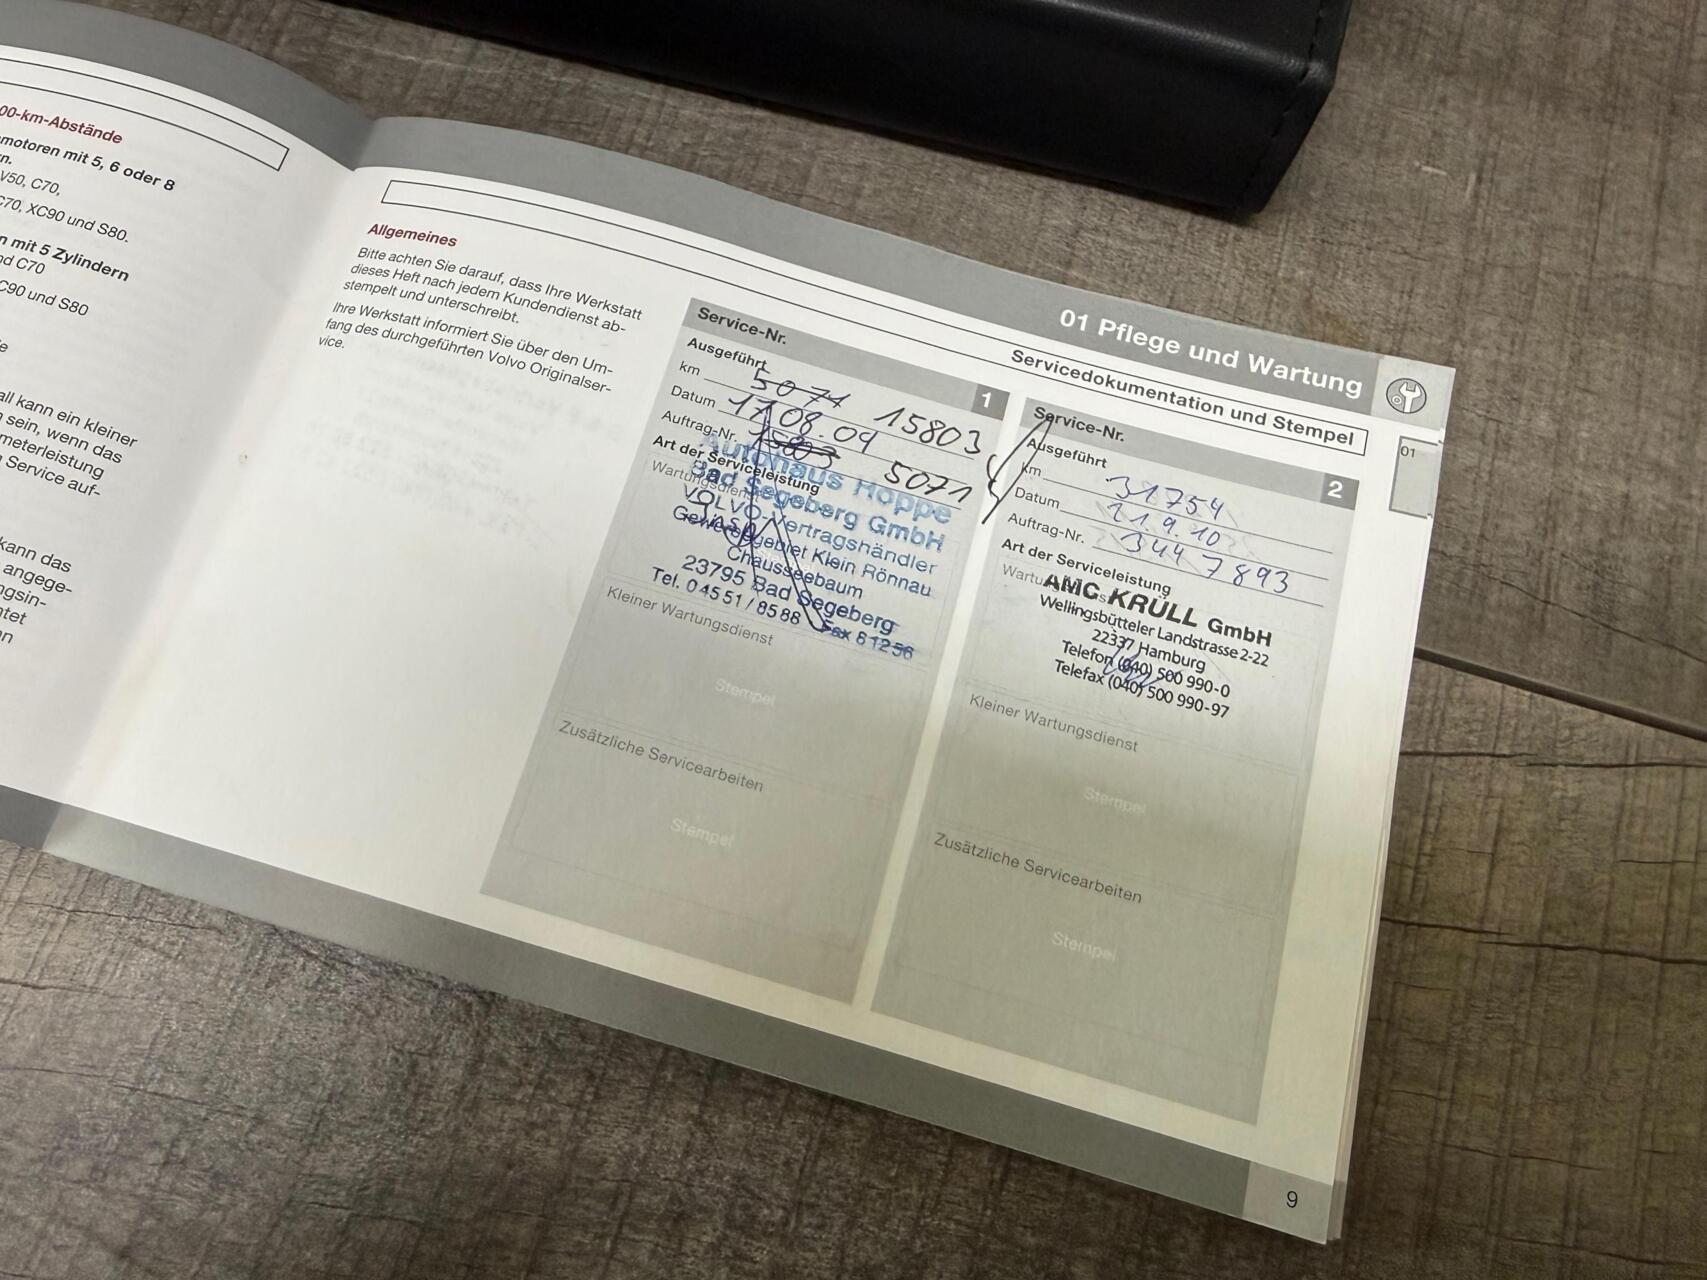 00-km-Abstände
motoren mit 5, 6 oder 8
n.
V50, C70,
C70, XC90 und S80.
n mit 5 Zylindern
nd C70
C90 und S80
e
all kann ein kleiner
n sein, wenn das
meterleistung
Service auf-
kann das
angege-
ngsin-
htet
nn
Allgemeines
Bitte achten Sie darauf, dass Ihre Werkstatt
dieses Heft nach jedem Kundendienst ab-
stempelt und unterschreibt.
Ihre Werkstatt informiert Sie über den Um-
fang des durchgeführten Volvo Originalser-
vice.
01 Pflege und Wartung
Servicedokumentation und Stempel
01
Service-Nr. 1
Ausgeführt
km 5071 15803
Datum 17.08.09
Auftrag-Nr. 15803 5071
Art der Serviceleistung
Wartungsdienst
Autohaus Hoppe
Bad Segeberg GmbH
VOLVO-Vertragshändler
Gewerbegebiet Klein Rönnau
Chausseebaum
23795 Bad Segeberg
Tel. 04551/8588 Fax 81256
Kleiner Wartungsdienst
Stempel
Zusätzliche Servicearbeiten
Stempel
Service-Nr. 2
Ausgeführt
km 31754
Datum 21.9.10
Auftrag-Nr. 344 7893
Art der Serviceleistung
AMC KRÜLL GmbH
Wellingsbütteler Landstrasse 2-22
22337 Hamburg
Telefon (040) 500 990-0
Telefax (040) 500 990-97
Kleiner Wartungsdienst
Stempel
Zusätzliche Servicearbeiten
Stempel
9